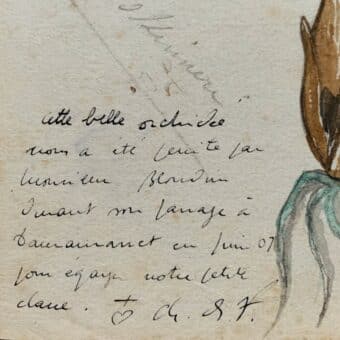 Skinneri
cette belle orchidée
nous a été peinte par
Monsieur Blondin
durant son passage à
en Juin 07
pour égayer notre petite
classe. Ch. de F.